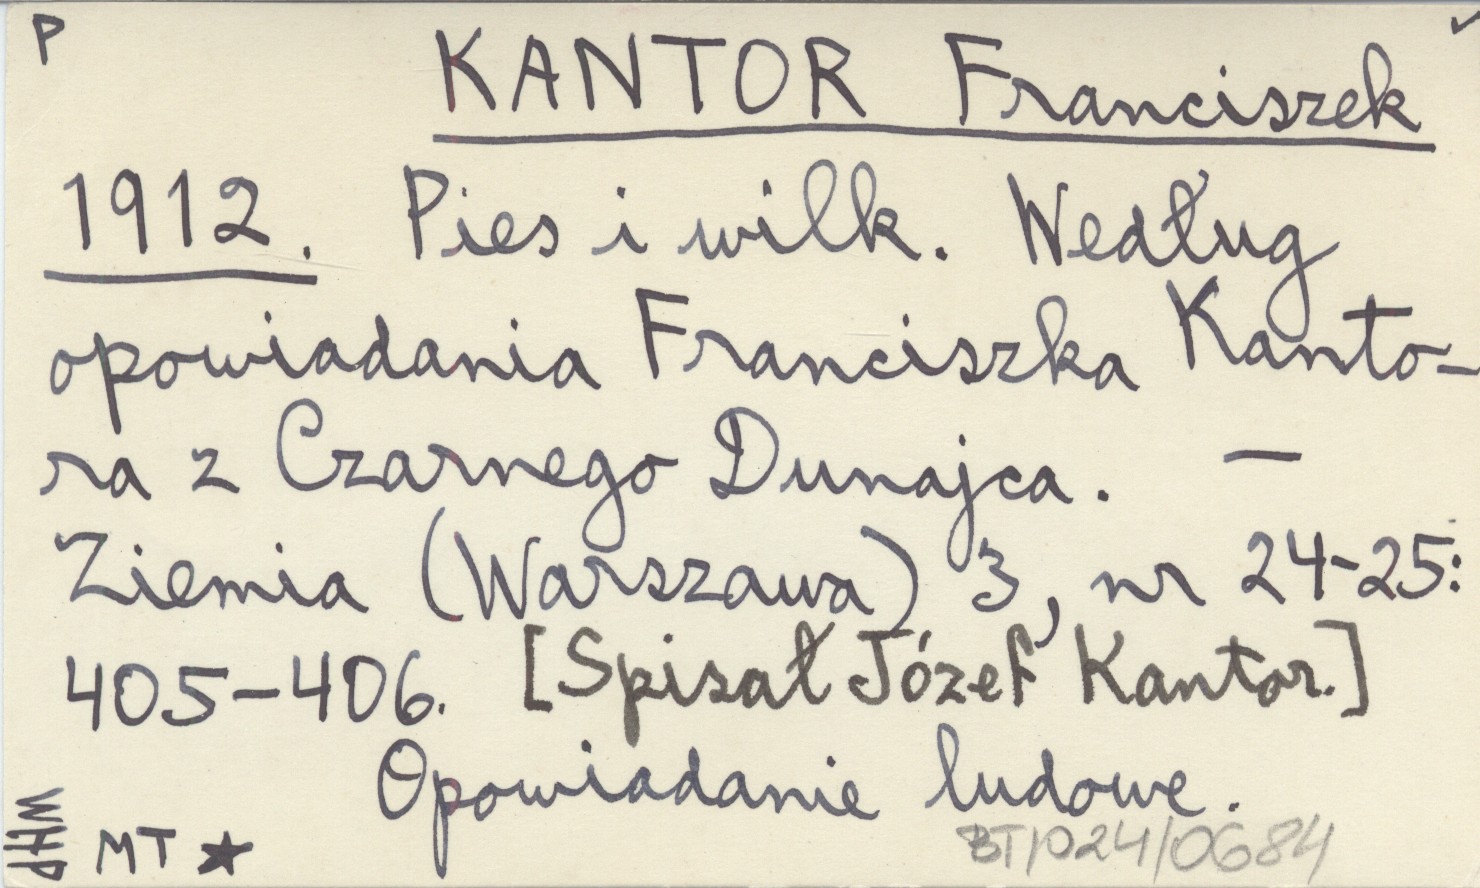 P
KANTOR Franciszek
1912. Pies i wilk. Według
opowiadania Franciszka Kanto-
ra z Czarnego Dunajca. —
Ziemia (Warszawa) 3, nr 24-25:
405-406. [Spisał Józef Kantor.]
Opowiadanie ludowe.
WHP MT ★
BT/024/0684